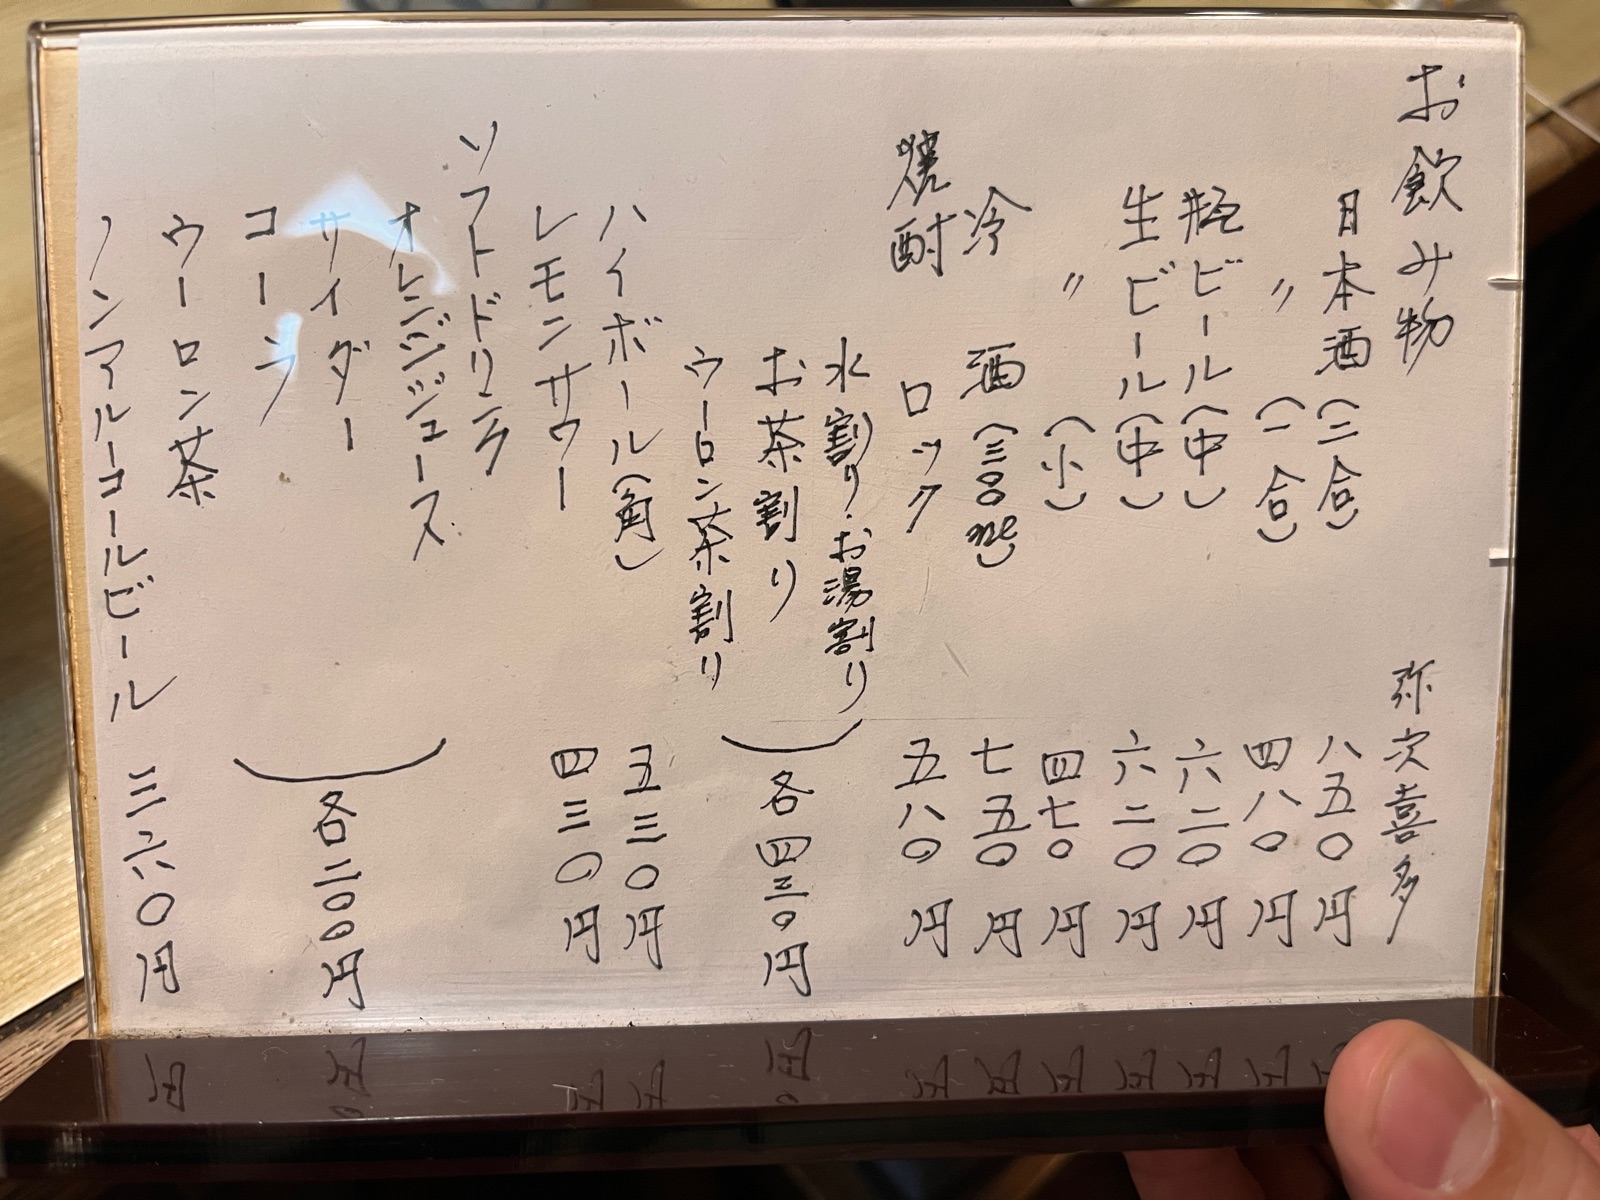 お飲み物 弥次喜多
日本酒(二合) 八五〇円
〃(一合) 四八〇円
瓶ビール(中) 六二〇円
生ビール(中) 六二〇円
〃(小) 四七〇円
冷酒(三〇〇ml) 七五〇円
焼酎 ロック 五八〇円
水割り・お湯割り
お茶割り 各四三〇円
ウーロン茶割り
ハイボール(角) 五三〇円
レモンサワー 四三〇円
ソフトドリンク
オレンジジュース
サイダー 各二〇〇円
コーラ
ウーロン茶
ノンアルコールビール 三六〇円